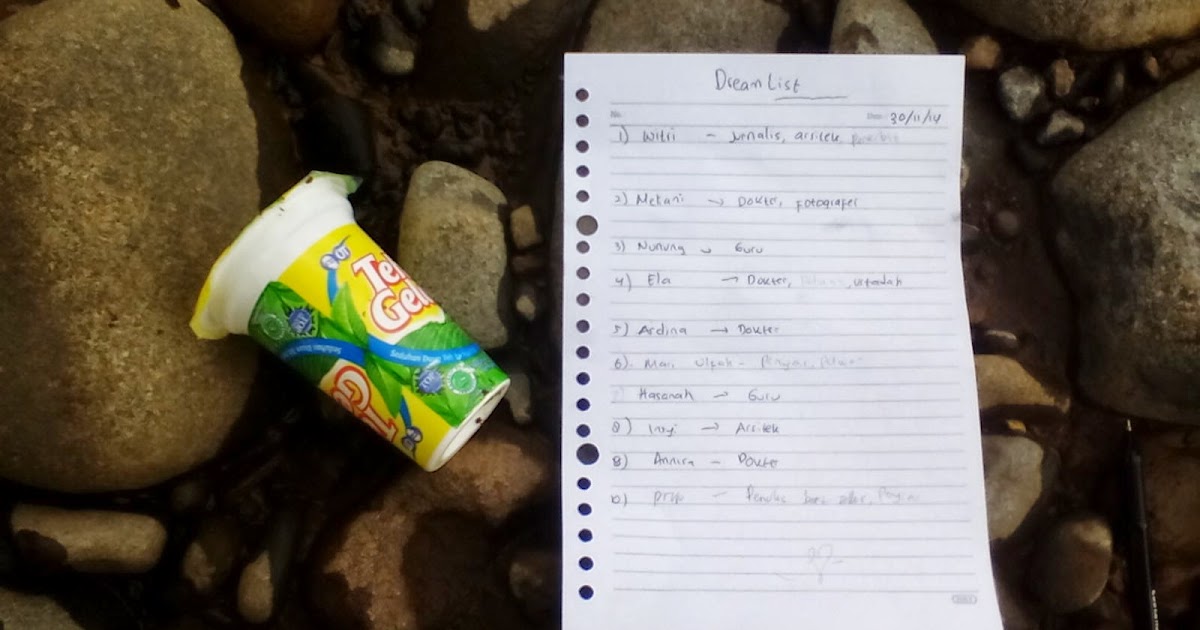 Dream List
No.
Date: 30/11/14
1) Witri - Jurnalis, arsitek
2) Mekani → Dokter, fotografer
3) Nunung → Guru
4) Ela → Dokter, ustadah
5) Ardina → Dokter
6). Mari Ulfah -
Hasanah → Guru
8) → Arsitek
8) Annira - Dokter
10) - Penulis
Teh
Gel
Seduhan Daun Teh